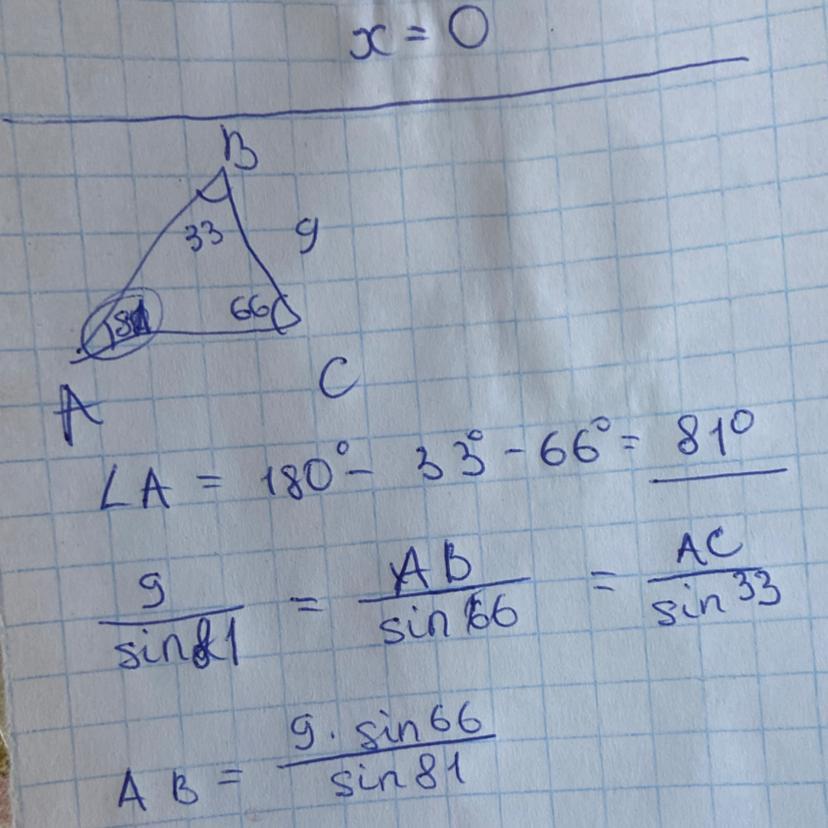 x = 0
B
33
9
81
66
A
C
∠A = 180° - 33° - 66° = 81°
9/sin81 = AB/sin66 = AC/sin33
AB = 9·sin66/sin81